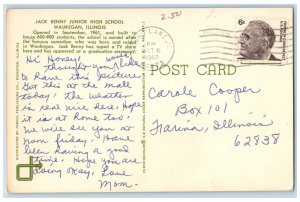 2.50
JACK BENNY JUNIOR HIGH SCHOOL
WAUKEGAN, ILLINOIS
Opened in September, 1961, and built to
house 600-800 students, the school is named after
the famous comedian who was born and raised
in Waukegan. Jack Benny has taped a TV show
here and has appeared on several occasions.
Hi Honey!
thought you'd like
to have this picture.
Got this at the mall
today. The weather
is real nice here. Hope
it is at home too.
We will see you at
noon friday. Have
been having a good
time. Hope you are
doing okay. Love
Mom.
POST CARD
PM
OCT 6
6¢
Carole Cooper
Box 101
Farina, Illinois
62838